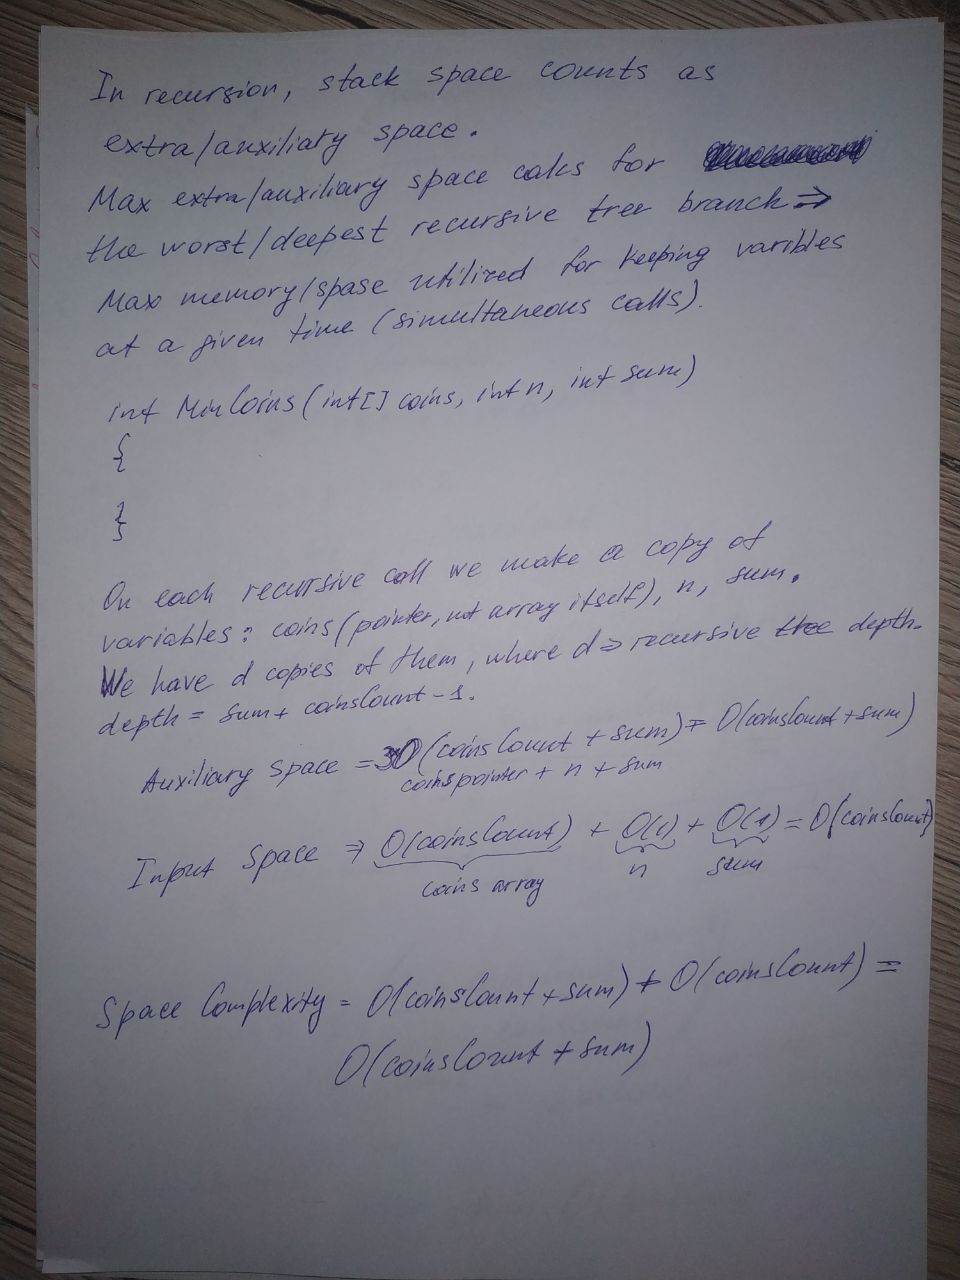 In recursion, stack space counts as
extra/auxiliary space.
Max extra/auxiliary space calcs for
the worst/deepest recursive tree branch ⇒
Max memory/spase utilized for keeping varibles
at a given time (simultaneous calls).
int MinCoins(int[] coins, int n, int sum)
{
}
On each recursive call we make a copy of
variables: coins (pointer, not array itself), n, sum.
We have d copies of them, where d ⇒ recursive tree depth.
depth = sum + coinsCount - 1.
Auxiliary space = 3O(coinsCount + sum) = O(coinsCount + sum)
coins pointer + n + sum
Input Space ⇒ O(coinsCount) + O(1) + O(1) = O(coinsCount)
coins array n sum
Space Complexity = O(coinsCount + sum) + O(coinsCount) =
O(coinsCount + sum)